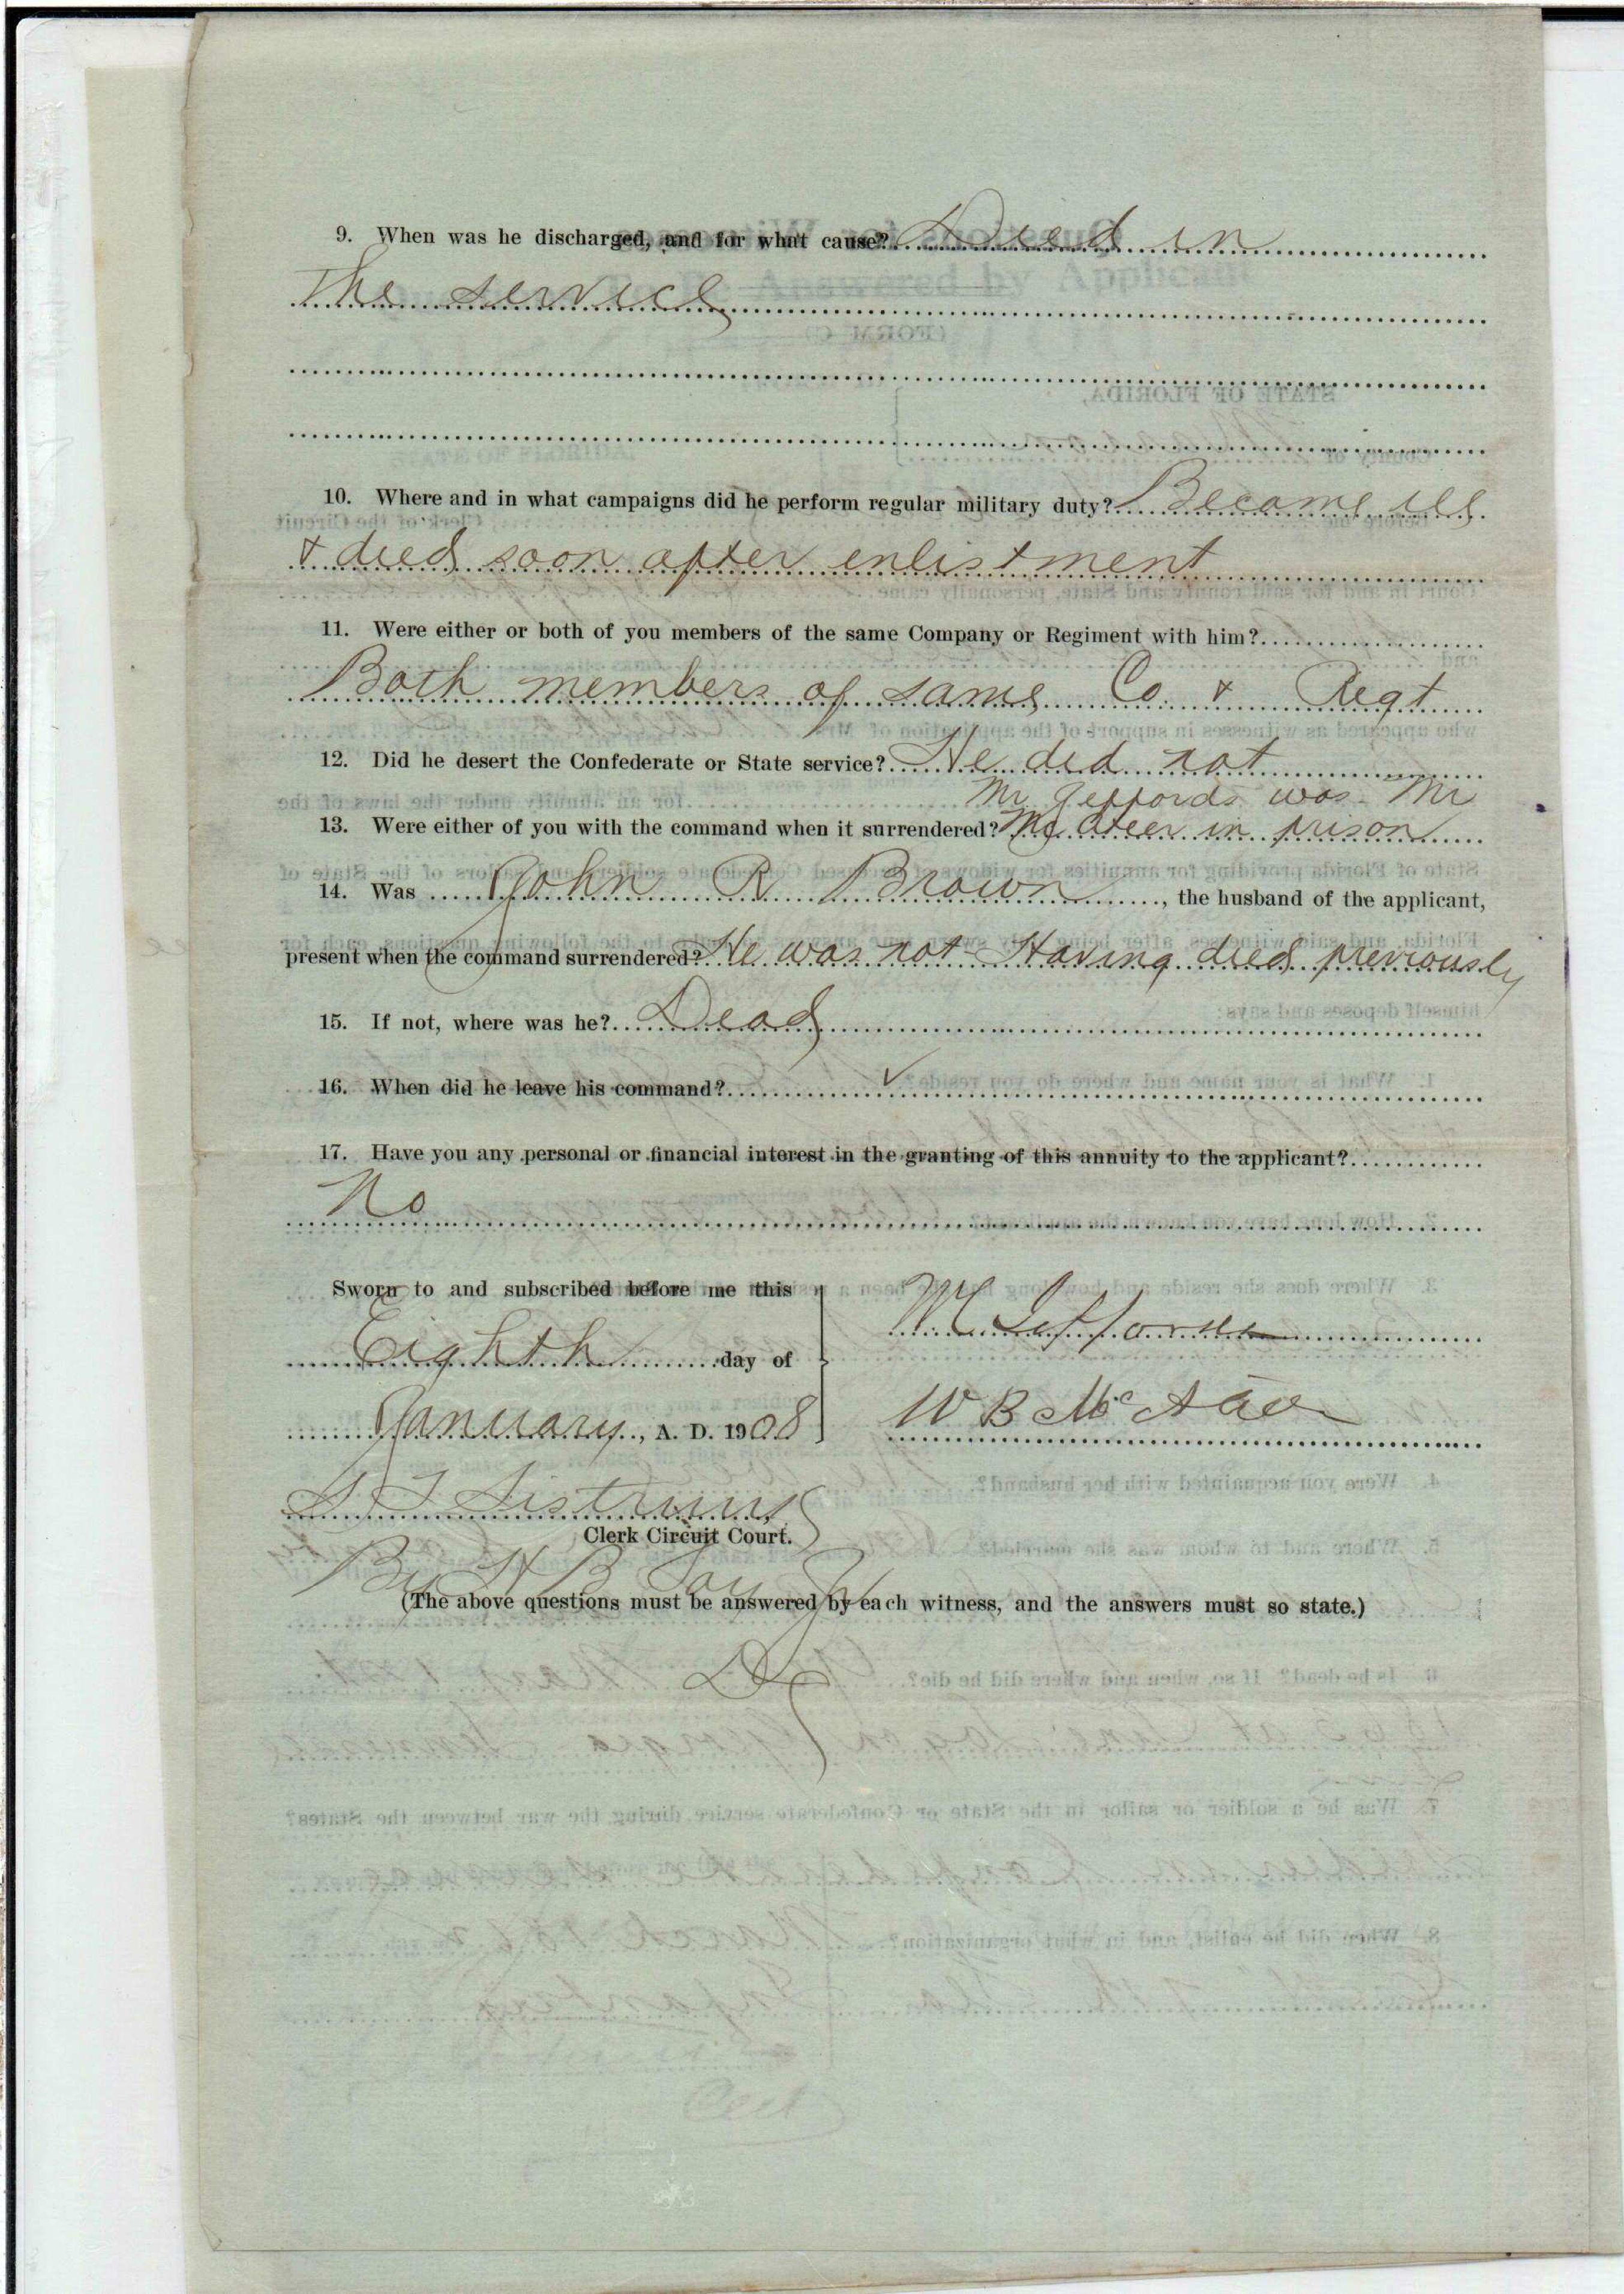 9. When was he discharged, and for what cause? Died in
the service
10. Where and in what campaigns did he perform regular military duty? Became ill
& died soon after enlistment
11. Were either or both of you members of the same Company or Regiment with him?
Both members of same Co. & Regt
12. Did he desert the Confederate or State service? He did not
Mr Jeffords was. Mr
13. Were either of you with the command when it surrendered? McAteer in prison
14. Was John R Brown, the husband of the applicant,
present when the command surrendered? He was not Having died previously
15. If not, where was he? Dead
16. When did he leave his command? ✓
17. Have you any personal or financial interest in the granting of this annuity to the applicant?
No
Sworn to and subscribed before me this
Eighth day of
January, A. D. 1908
M Jeffords
W B McAteer
S T Sistrunk
Clerk Circuit Court.
By H B
(The above questions must be answered by each witness, and the answers must so state.)
DC